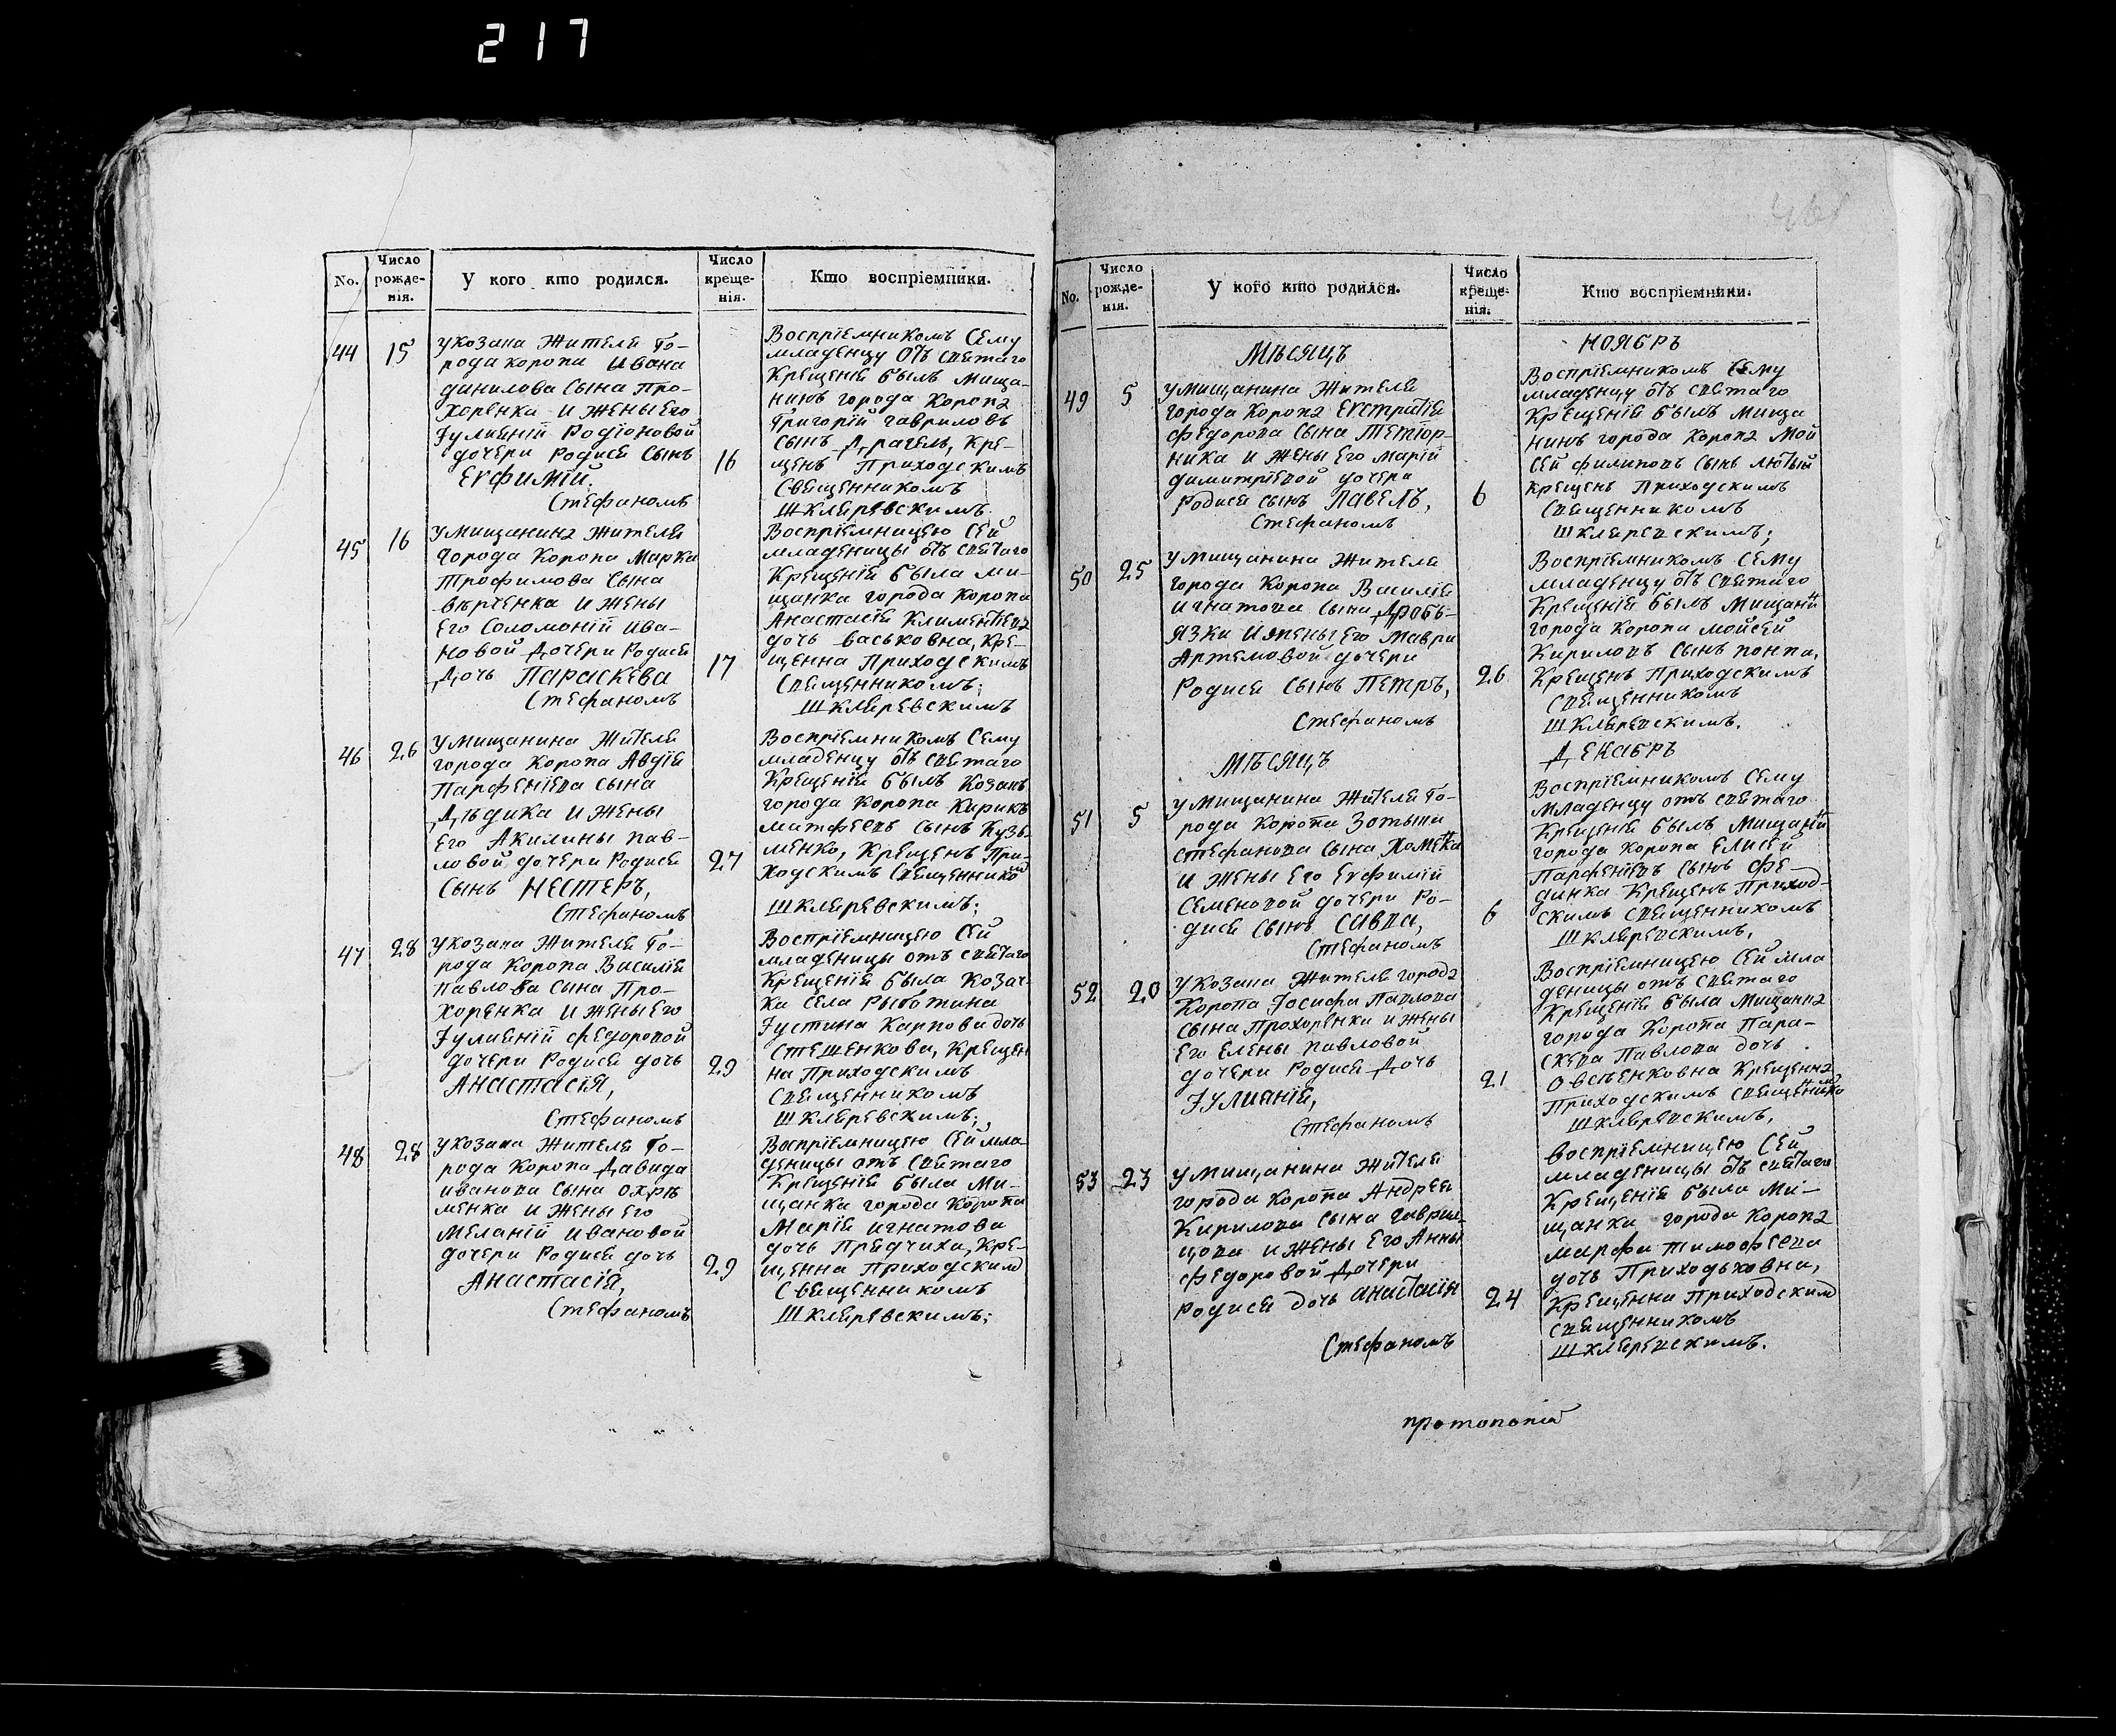 217
No.
Число рожде-нія.
У кого кто родился.
Число креще-нія.
Кто воспріемники.
44
15
У козака Жителя Го-
рода Коропа Ивана
данилова Сына Про-
хоренка и Жены Его
Іулианій Родіоновой
дочери Родися Сынъ
Евфимій.
Стефаномъ
16
Воспріемникомъ Сему
младенцу отъ святаго
Крещенія былъ мища-
нинъ города Коропа
Григорій гавриловъ
Сынъ Драгель, Кре-
щенъ Приходскимъ
Священникомъ
Шкляревскимъ.
45
16
У мищанина Жителя
города Коропа Марка
Трофимова Сына
вѣрченка и Жены
Его Соломоній Ива-
новой дочери Родися
Дочь Параскева
Стефаномъ
17
Воспріемницею Сей
младеницы отъ святаго
Крещенія была ми-
щанка города Коропа
Анастасія Климентіева
дочь васьковна, Кре-
щенна Приходскимъ
Священникомъ;
Шкляревскимъ
46
26
У мищанина Жителя
города Коропа Авдія
Парфеніева Сына
Дѣдика и Жены
Его Акилины Пав-
ловой дочери Родися
Сынъ Нестеръ,
Стефаномъ
27
Воспріемникомъ Сему
младенцу отъ святаго
Крещенія былъ Козакъ
города Коропа Кирикъ
Матфеевъ Сынъ Кузь-
менко, Крещенъ При-
ходскимъ Священникомъ
Шкляревскимъ;
47
28
У козака Жителя Го-
рода Коропа Василія
Павлова Сына Про-
хоренка и Жены Его
Іулианій Федоровой
дочери Родися дочь
Анастасія,
Стефаномъ
29
Воспріемницею Сей
младеницы отъ святаго
Крещенія была Козач-
ка Села Рыботина
Іустина Карпова дочь
Стешенкова, Крещен
на Приходскимъ
Священникомъ
Шкляревскимъ;
48
28
У козака Жителя Го-
рода Коропа Давида
иванова Сына Охрѣ
менка и Жены Его
Меланій Ивановой
дочери Родися дочь
Анастасія,
Стефаномъ
29
Воспріемницею Сей мла-
деницы отъ святаго
Крещенія была Ми-
щанка города Коропа
Марія Игнатова
дочь Предчиха, Кре-
щенна Приходскимъ
Священникомъ
Шкляревскимъ;
No.
Число рожде-нія.
У кого кто родился.
Число креще-нія.
Кто воспріемники.
Мѣсяцъ
Ноябръ
49
5
У мищанина Жителя
города Коропа Евстратія
Федорова Сына Тетіор-
ника и Жены Его Марій
димитріевой дочери
Родися Сынъ Павелъ,
Стефаномъ
6
Воспріемникомъ Сему
младенцу отъ святаго
Крещенія былъ мища
нинъ города Коропа Мой
сей филиповъ Сынъ лютый
Крещенъ Приходскимъ
Священникомъ
Шкляревскимъ;
50
25
У мищанина Жителя
города Коропа Василія
Игнатова Сына Дробъ-
язки и жены Его Маври
Артемовой дочери
Родися Сынъ Петръ,
Стефаномъ
26
Воспріемникомъ Сему
младенцу отъ святаго
Крещенія былъ Мищанинъ
города Коропа Мойсей
Кириловъ Сынъ поппа,
Крещенъ Приходскимъ
Священникомъ
Шкляревскимъ.
Мѣсяцъ
Декабръ
51
5
У мищанина Жителя Го-
рода Коропа Зотыка
Стефанова Сына Хоменка
и Жены Его Евфимій
Семеновой дочери Ро-
дися Сынъ Савва,
Стефаномъ
6
Воспріемникомъ Сему
младенцу отъ святаго
Крещенія былъ Мищанинъ
города Коропа Елисей
Парфеніевъ Сынъ Фе-
динка Крещенъ Приход-
скимъ Священникомъ
Шкляревскимъ,
52
20
У козака Жителя города
Коропа Іосифа Павлова
Сына Прохоренки и Жены
Его Елены Павловой
дочери Родися Дочь
Іулианія,
Стефаномъ
21
Воспріемницею Сей мла
деницы отъ святаго
Крещенія была Мищанка
города Коропа Пара-
скева Павлова дочь
Овсѣенковна Крещенна
Приходскимъ Священникомъ
Шкляревскимъ,
53
23
У мищанина Жителя
города Коропа Андрея
Кирилова Сына Гаври-
цова и Жены Его Анны
Федоровой Дочери
Родися дочь Анастасія
Стефаномъ
24
Воспріемницею Сей
младеницы отъ святаго
Крещенія была Ми-
щанка города Коропа
Марфа Тимофеева
дочь Приходьковна,
Крещенна Приходскимъ
Священникомъ
Шкляревскимъ.
протопопія